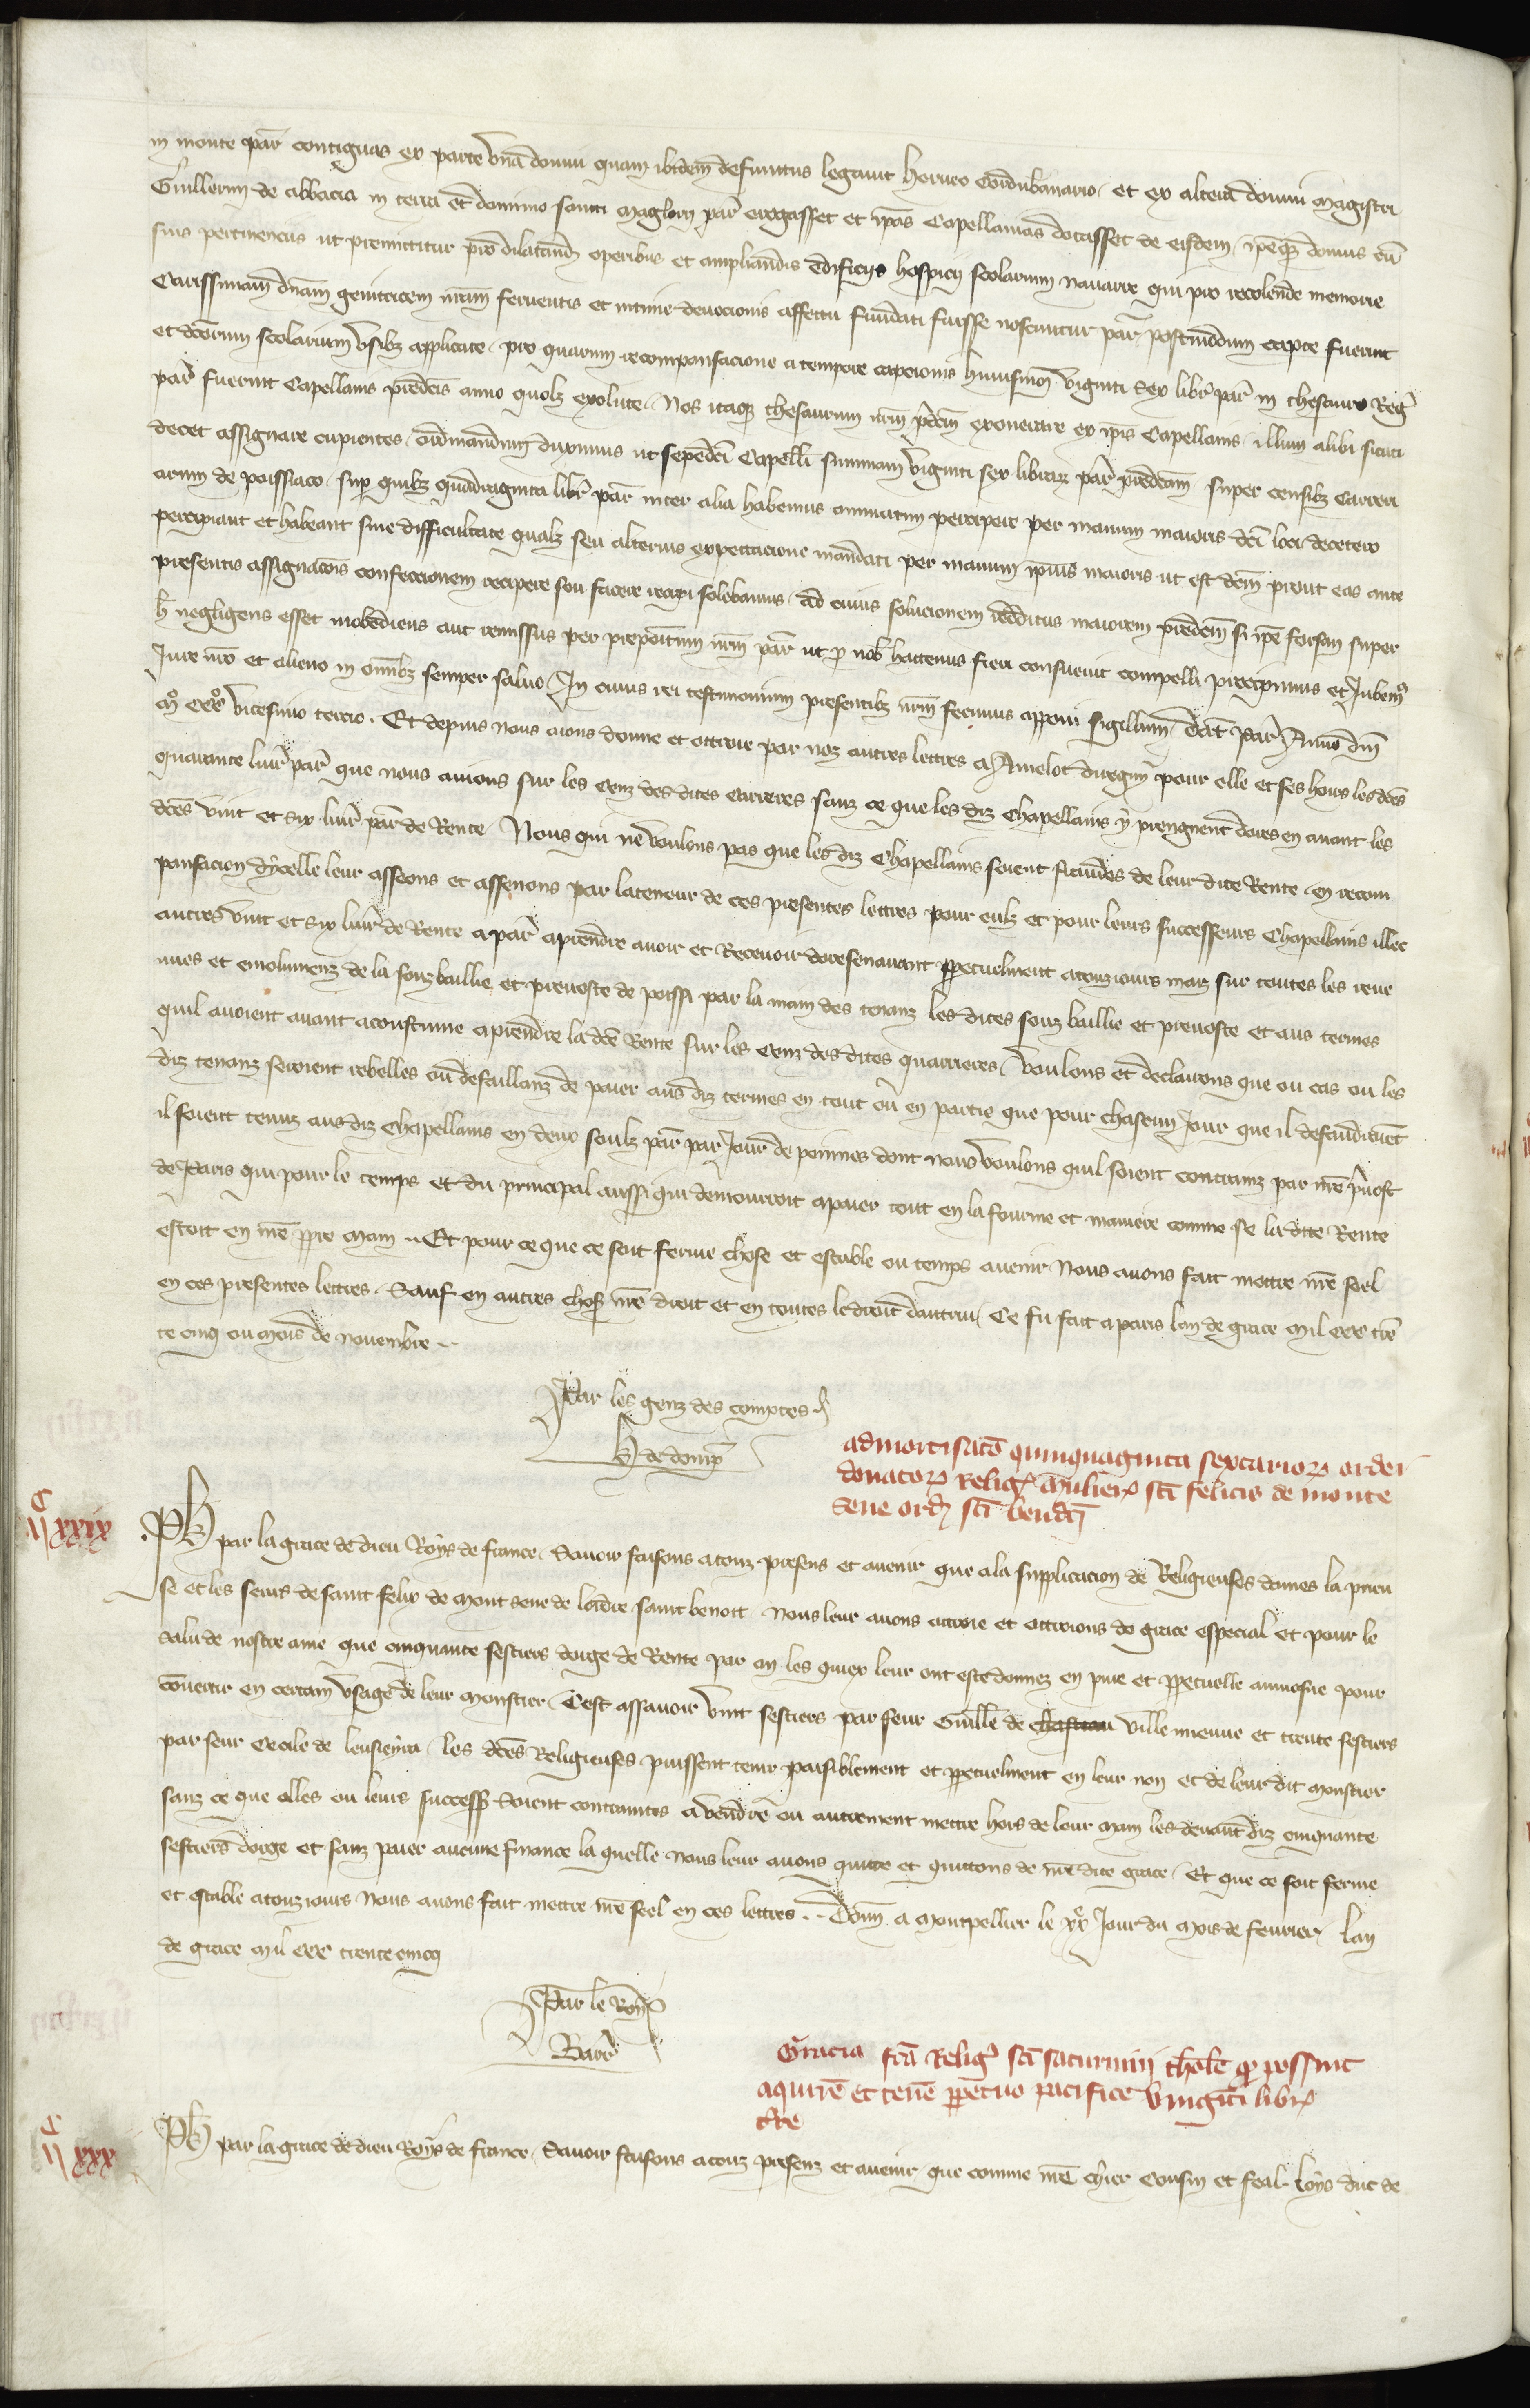 in monte par̄ contiguas ex parte vna domui quam ibidem defunctus legauit herueo Cordubanario, et ex altera domui magistri
Guillermi de abbacia in terra et dominio sancti maglorii par̄ erogasset et ip̄as Capellanias dotasset de eisdem, ip̄eq̧ domus cū
suis pertinencus ut premittitur pro dilatand operibus et ampliandis edificiis hospicij scolarium nauarre qui pro recolende memorie
Carissimam dn̄am genitricem nr̄am feruentis et intime deuocionis affectu fundati fuisse noscuntur par̄ postmodum capte fuerunt
et dc̄orum scolarium vsibȝ applicate, pro quarum recompensacione a tempore capcionis huiusmōi viginti sex libr̄ par̄ in thesauro Reḡ
par̄ fuerunt Capellanis predc̄is anno quolȝ exolute. Nos itaq̧ thesaurum nr̄m p̄dc̄m exonerare ex ip̄is Capellanis, illum alibi sicuti
decet assignare cupientes, ordinandum duximus ut sepedc̄i Capelli summam viginti sex librarȝ par̄ predc̄am super censibȝ carreri
arum de poissiaco, sup̄ quibȝ quadraginta libr̄ par̄ inter alia habemus annuatim percipere per manum maioris dc̄i loci decetero
percipiant et habeant sine difficultate qualȝ seu alterius expectacione mandati per manum ip̄ius maioris ut est dc̄m prout eas ante
presentis assignac̄ois confeccionem recipere seu facere recipi solebamus, ad cuius solucionem redditus maiorem predc̄m si ip̄e forsan super
h̄ negligens esset inobediens aut remissus per prepositum nr̄m par̄ ut p nob̄ hactenus fieri consueuit compelli precipimus et Jubem̄ꝰ
Jure nr̄o et alieno in om̄ibȝ semper saluo. In cuius rei testimonium presentibȝ nr̄m fecimus apponi sigillum, Dat̄ Par̄ Anno dn̄i
mͦ cccͦ vicesimo tercio. Et depuis nous aions donne et ottroie par noz autres lettres a Amelot pour elle et ses hoirs les dc̄es
quarante liur̄ par̄ que nous auions sur les cenz des dites carrieres sanz ce que les diz Chapellains y prengnent dores en auant les
dc̄es vint et six liur̄ par̄ de Rente. Nous qui ne voulons pas que les diz Chapellains soient fraudes de leur dite Rente en recom
pansacion dycelle leur asseons et assenons par la teneur de ces presentes lettres pour eulz et pour leurs successeurs Chapellains illec
autres vint et six liur̄ de Rente a par̄ a prendre auoir et Receuoir doresenauant ꝑpetuelment a touz iours maiz sur toutes les reue
nues et emolumenz de la souzbaillie et preuoste de poissi par la main des tenanz les dites souz baillie et preuoste et aus termes
quil auoient auant acoustume a prendre la dc̄e Rente sur les cenz des dites quarrieres, Voulons et declairons que ou cas ou les
diz tenanz seroient rebelles ou defaillanz de paier aus diz termes en tout ou en partie que pour chascun Jour que il defaudroient
il soient tenuz aus diz Chapellains en deux soulz par̄ par Jour de peinnes dont nous voulons quil soient contrainz par nr̄e p̄uost
de Paris qui pour le temps et du principal aussi qui demourroit a paier tout en la fourme et maniere comme se la dite Rente
estoit en nr̄e ꝓpre main. Et pour ce que ce soit ferme chose et estable ou temps auenir Nous auons fait mettre nr̄e seel
en ces presentes lettres, Sauf en autres chos̄ nr̄e droit et en toutes le droit dautrui, Ce fu fait a paris lan de grace mil ccc tr̄e
te cinq ou mois de nouembre.
Par les genz des comptes
H de domp̄
admortisac̄o quinquaginta sextarioꝝ ordei
donatoꝝ Reliģ mulieŗ sc̄i felicis de monte
seue ord̄ sc̄i bend̄ci
CII XXIX
Ph par la grace de dieu Roys de france, Sauoir faisons a touz presens et auenir que a la supplicacion de Religieuses dames la prieu
se et les seurs de saint felix de Mont seue de lordre saint benoit, Nous leur auons ottroie et ottroions de grace especial et pour le
salu de nostre ame que cinquante sestiers dorge de Rente par an les quiex leur ont este donnez en pure et ꝑpetuelle aumosne pour
couertir en certain vsage de leur monstier, Cest assauoir vint sestiers par seur Guille de chastiau ville mienne et trente sestiers
par seur Cecile de leusieyra, les dc̄es Religieuses puissent tenir paisiblement et ꝑpetuelment en leur non et de leur dit monstier
sanz ce que elles ou leurs success̄ soient contraintes a vendre ou autrement mettre hors de leur main les deuant diz cinquante
sestiers dorge et sanz paier aucune finance la quelle nous leur auons quitte et quittons de nr̄e dite grace, Et que ce soit ferme
et estable a touz iours Nous auons fait mettre nr̄e seel en ces lettres. Donn̄ a Montpellier le xͤ Jour du mois de feurier, lan
de grace mil ccc trente cincq
Par le Roy
Barr̄
Gracia fc̄a Reliģ sc̄i saturnini thole q̄ possint
aquire et tene ꝑpetuo pacifice vinginti libŗ
tr̄e
CII XXX
Ph par la grace de dieu Roys de france, Sauoir faisons a touz presenz et auenir que comme nr̄e chier Cousin et feal Loys duc de